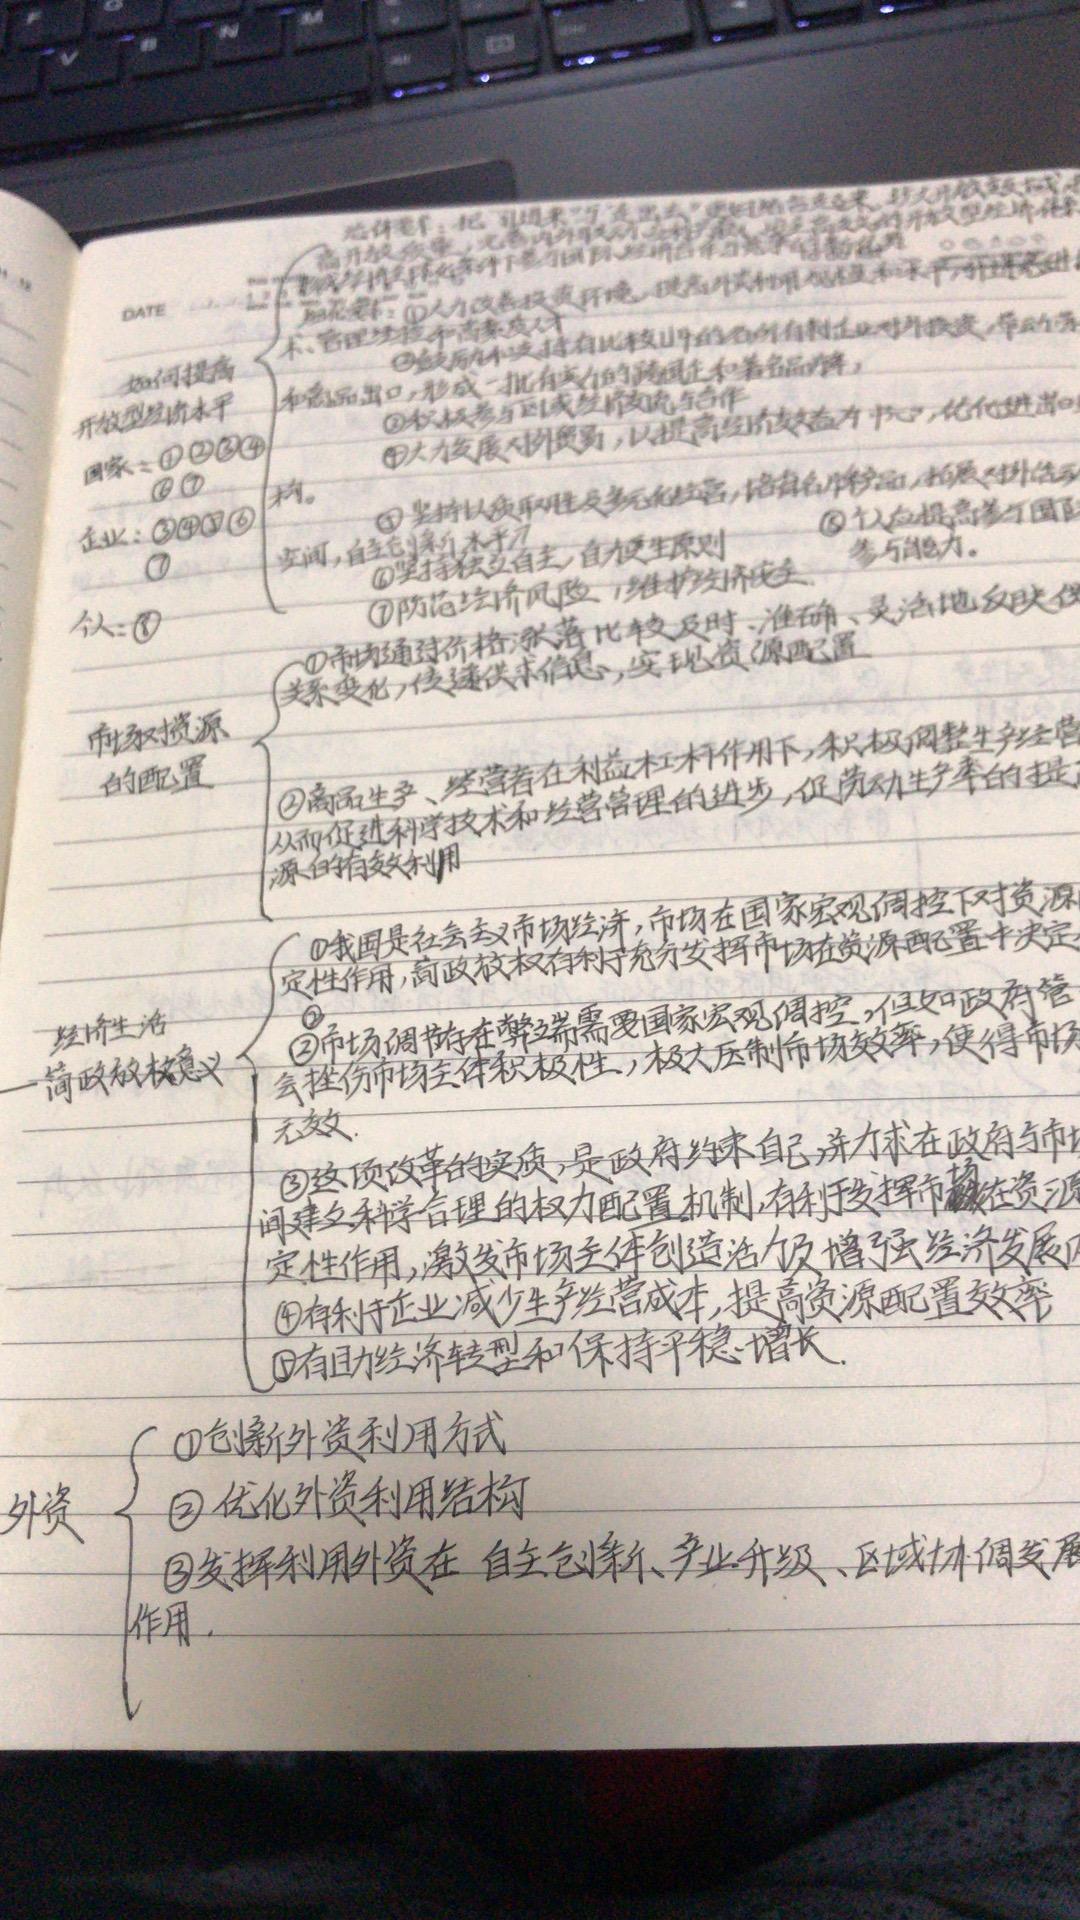 DATE
总体要求：把"引进来"与"走出去"
高开放质量，完善内外
具体要求：①大力改善投资环境，提高外资利用
术、管理经验和高素质人才
如何提高
②鼓励和支持有比较优势的各种所有制企业对外投资，带动
和商品出口，形成一批有实力的跨国企和著名品牌，
开放型经济水平
③积极参与区域经济交流与合作
国家：①②③④
④大力发展对外贸易，以提高经济效益为中心，优化进出口
⑥⑦
构。
⑤坚持以质取胜及多元化经营，培育名牌产品，拓展对外
企业：③④⑤⑥
空间，自主创新水平
⑧个人应提高参与国
⑦
⑥坚持独立自主，自力更生原则
参与能力。
个人：⑧
⑦防范经济风险，维护经济安全
①市场通过价格涨落比较及时、准确、灵活地反映供
关系变化，传递供求信息，实现资源配置
市场对资源
的配置
②商品生产、经营者在利益杠杆作用下，积极调整生产经营
从而促进科学技术和经营管理的进步，促劳动生产率的提
源的有效利用
①我国是社会主义市场经济，市场在国家宏观调控下对资源
定性作用，简政放权有利于充分发挥市场在资源配置中决定
②
经济生活
②市场调节存在弊端需要国家宏观调控，但如政府管
一简政放权意义
会挫伤市场主体积极性，极大压制市场效率，使得市场
无效.
③这项改革的实质，是政府约束自己，并力求在政府与市场
间建立科学合理的权力配置机制，有利于发挥市场在资源
定性作用，激发市场主体创造活力及增强经济发展
④有利于企业减少生产经营成本，提高资源配置效率
⑤有助经济转型和保持平稳增长.
①创新外资利用方式
外资
②优化外资利用结构
③发挥利用外资在 自主创新、产业升级、区域协调发展
作用.